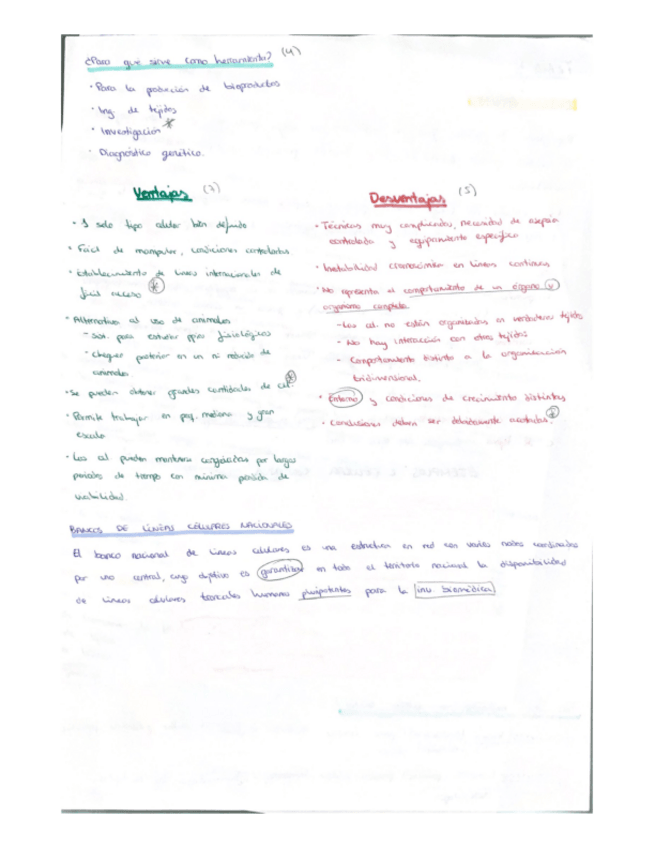 ¿Para qué sirve como herramienta? (4)
· Para la producción de bioproductos
· Ing. de tejidos
· Investigación *
· Diagnóstico genético.
Ventajas (7)
· 1 solo tipo celular bien definido
· Fácil de manipular, condiciones controladas
· Establecimiento de líneas internacionales de
fácil acceso *
· Alternativa al uso de animales
- Sist. para estudiar ppios fisiológicos
- Chequeo posterior en un nº reducido de
animales
· Se pueden obtener grandes cantidades de cél. *
· Permite trabajar en peq. mediana y gran
escala
· Las cél pueden mantenerse congeladas por largos
periodos de tiempo con mínima pérdida de
viabilidad.
Desventajas (5)
· Técnicas muy complicadas, necesidad de asepsia
controlada y equipamiento específico
· Inestabilidad cromosómica en líneas continuas
· No representa el comportamiento de un órgano u
organismo completo
- Las cél. no están organizadas en verdaderos tejidos
- No hay interacción con otros tejidos
- Comportamiento distinto a la organización
tridimensional.
· Entorno y condiciones de crecimiento distintas
· Condiciones deben ser debidamente acotadas. *
BANCOS DE LÍNEAS CÉLULARES NACIONALES
El banco nacional de líneas celulares es una estructura en red con varios nodos coordinados
por uno central, cuyo objetivo es garantizar en todo el territorio nacional la disponibilidad
de líneas celulares troncales humanas pluripotentes para la inv. biomédica